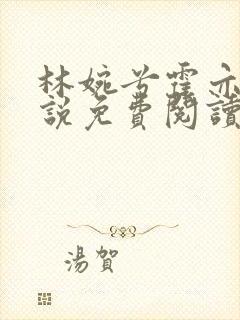 林婉兮霆亦
說免費閱讀
湯賀